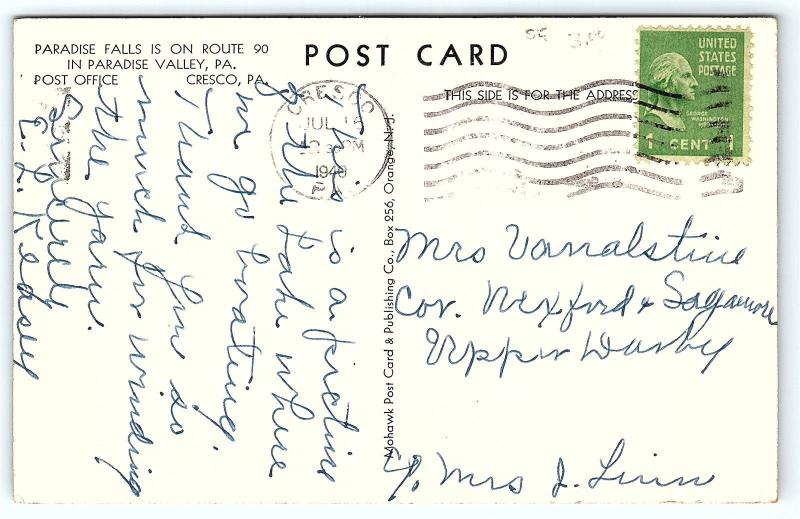 PARADISE FALLS IS ON ROUTE 90
IN PARADISE VALLEY, PA.
POST OFFICE CRESCO, PA.
POST CARD
THIS SIDE IS FOR THE ADDRESS
CRESCO
JUL 16
PM
1940
PA.
UNITED
STATES
POSTAGE
GEORGE
WASHINGTON
1 CENT 1
This is a picture
of the Lake where
we go boating.
Thank you so
much for winding
the yarn.
Sincerely
E. L.
Mohawk Post Card & Publishing Co., Box 256, Orange, N. J.
Mrs Vanalstine
Cor. Wexford & Sagamore
Upper Darby
℅ Mrs J. Linn